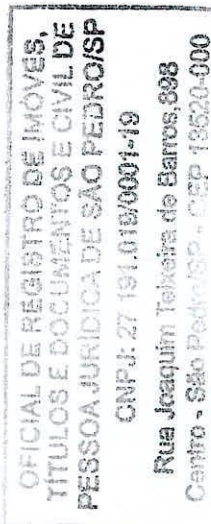 OFICIAL DE REGISTRO DE IMÓVEIS,
TÍTULOS E DOCUMENTOS E CIVIL DE
PESSOA JURÍDICA DE SÃO PEDRO/SP
CNPJ: 27.191.018/0001-19
Rua Joaquim Teixeira de Barros 898
Centro - São Pedro/SP - CEP 13520-000